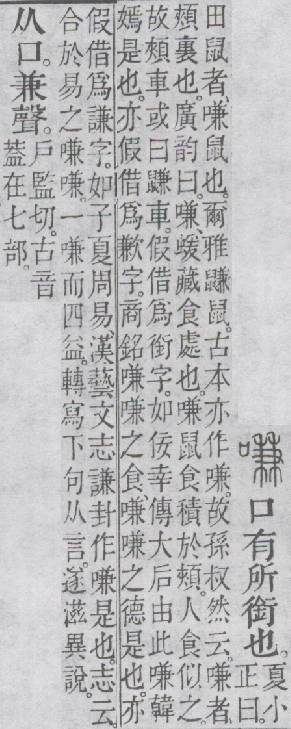 嗛 口有所銜也。夏小
正曰。
田鼠者、嗛鼠也。爾雅鼸鼠。古本亦作嗛。故孫叔然云。嗛者、
頰裏也。廣韵曰。嗛、猨藏食處也。嗛鼠食積於頰。人食似之。
故頰車或曰鼸車。假借爲銜字。如佞幸傳大后由此嗛韓
嫣是也。亦假借爲歉字。商銘嗛嗛之食、嗛嗛之德是也。亦
假借爲謙字。如子夏周易、漢藝文志謙卦作嗛是也。志云。
合於易之嗛嗛。一嗛而四益。轉寫下句从言。遂滋異說。
从口。兼聲。戶監切。古音
葢在七部。